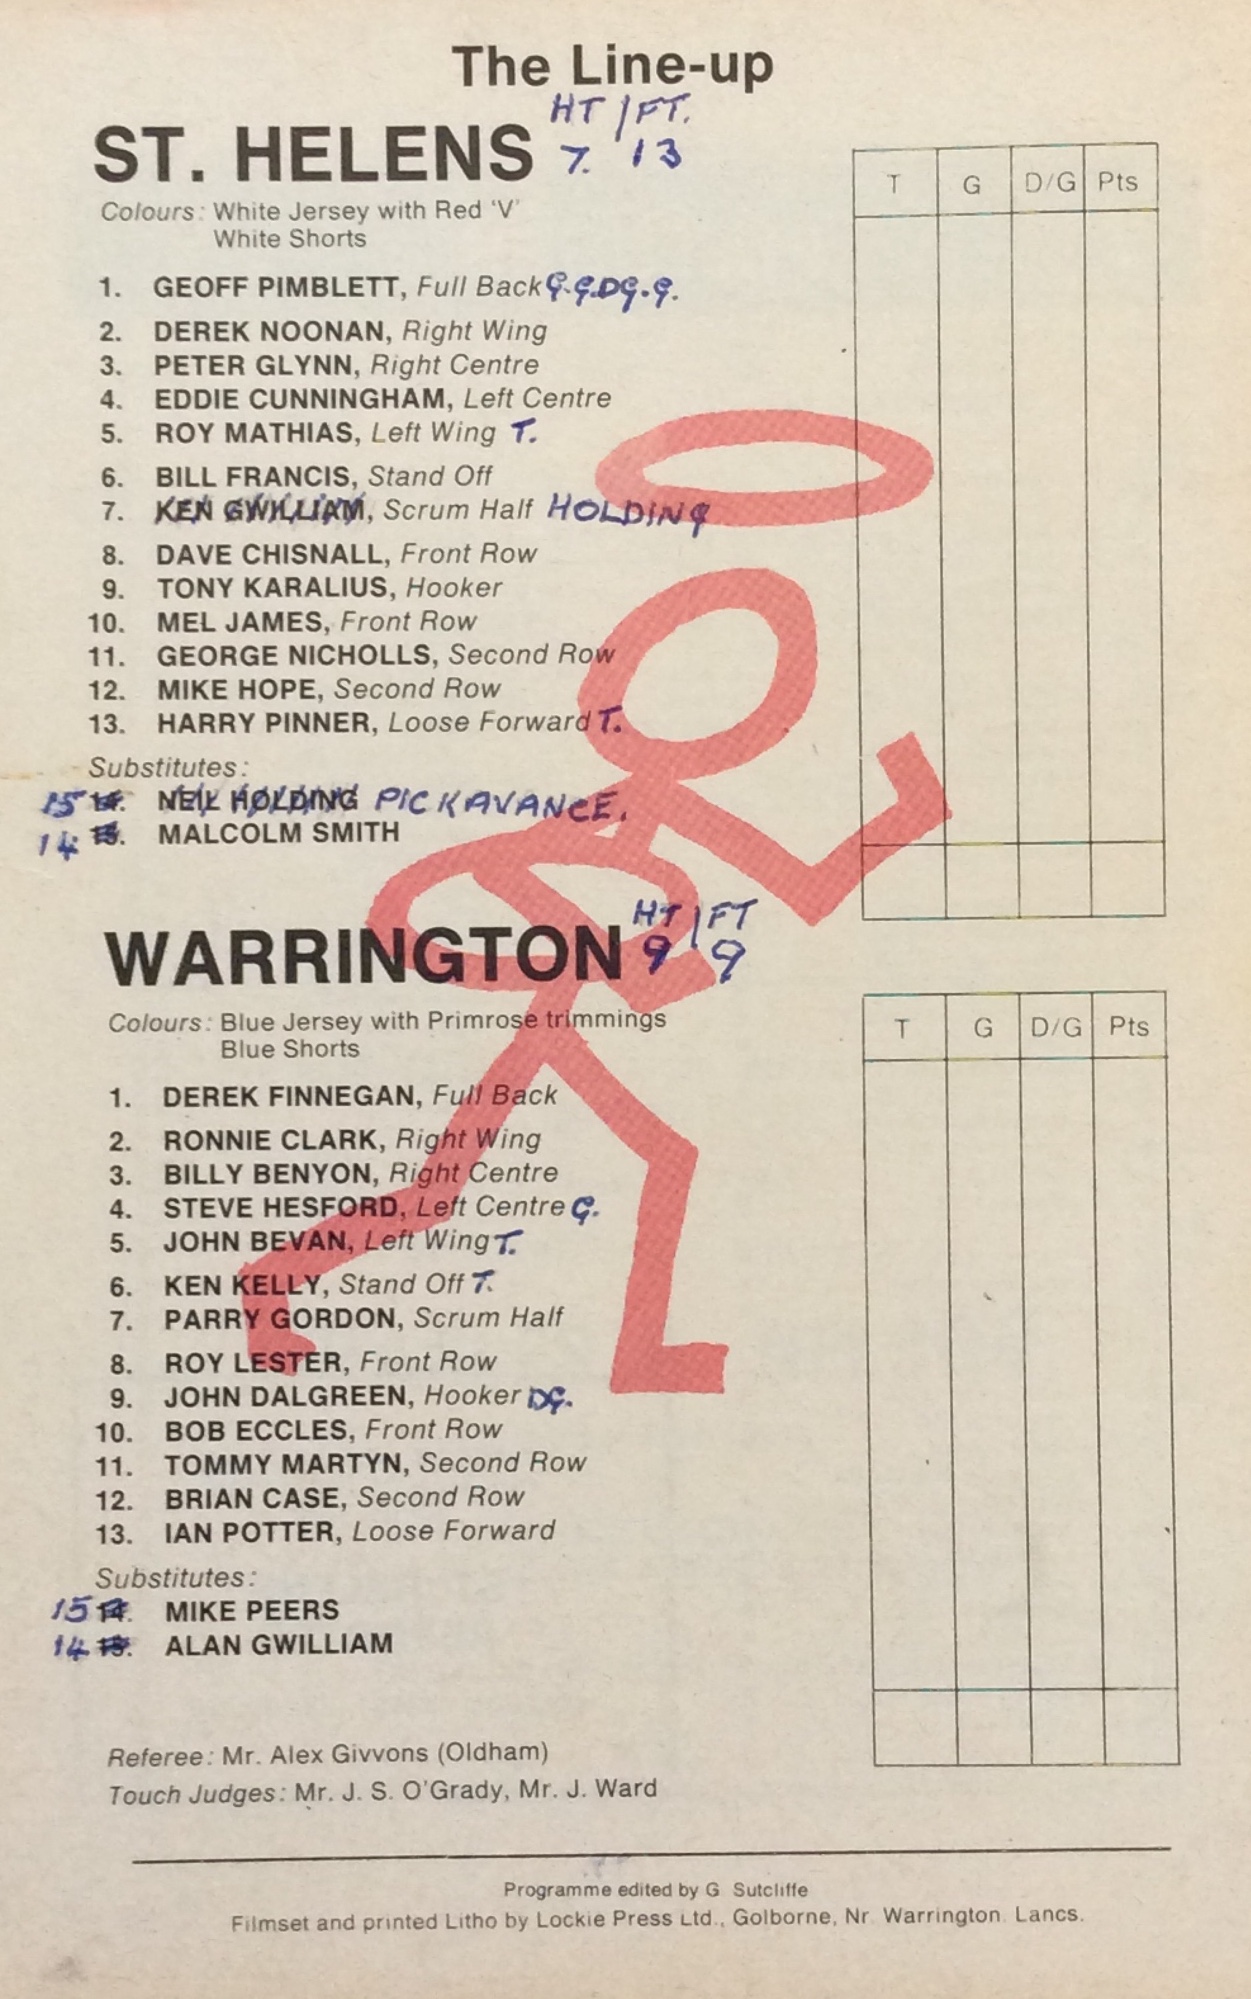 The Line-up
HT / FT.
ST. HELENS 7. 13
Colours: White Jersey with Red 'V'
White Shorts
T G D/G Pts
1. GEOFF PIMBLETT, Full Back G.G.DG.G.
2. DEREK NOONAN, Right Wing
3. PETER GLYNN, Right Centre
4. EDDIE CUNNINGHAM, Left Centre
5. ROY MATHIAS, Left Wing T.
6. BILL FRANCIS, Stand Off
7. KEN GWILLIAM, Scrum Half HOLDING
8. DAVE CHISNALL, Front Row
9. TONY KARALIUS, Hooker
10. MEL JAMES, Front Row
11. GEORGE NICHOLLS, Second Row
12. MIKE HOPE, Second Row
13. HARRY PINNER, Loose Forward T.
Substitutes:
15 14. NEIL HOLDING PICKAVANCE.
14 15. MALCOLM SMITH
HT / FT
WARRINGTON 9 9
Colours: Blue Jersey with Primrose trimmings
Blue Shorts
T G D/G Pts
1. DEREK FINNEGAN, Full Back
2. RONNIE CLARK, Right Wing
3. BILLY BENYON, Right Centre
4. STEVE HESFORD, Left Centre G.
5. JOHN BEVAN, Left Wing T.
6. KEN KELLY, Stand Off T.
7. PARRY GORDON, Scrum Half
8. ROY LESTER, Front Row
9. JOHN DALGREEN, Hooker DG.
10. BOB ECCLES, Front Row
11. TOMMY MARTYN, Second Row
12. BRIAN CASE, Second Row
13. IAN POTTER, Loose Forward
Substitutes:
15 14. MIKE PEERS
14 15. ALAN GWILLIAM
Referee: Mr. Alex Givvons (Oldham)
Touch Judges: Mr. J. S. O'Grady, Mr. J. Ward
Programme edited by G. Sutcliffe
Filmset and printed Litho by Lockie Press Ltd., Golborne, Nr. Warrington. Lancs.